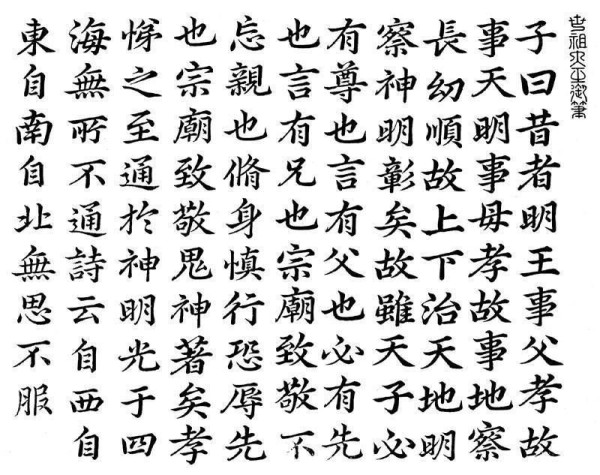 祖大王御筆
子曰昔者明王事父孝故
事天明事母孝故事地察
長幼順故上下治天地明
察神明彰矣故雖天子必
有尊也言有父也必有先
也言有兄也宗廟致敬不
忘親也脩身慎行恐辱先
也宗廟致敬鬼神著矣孝
悌之至通於神明光于四
海無所不通詩云自西自
東自南自北無思不服